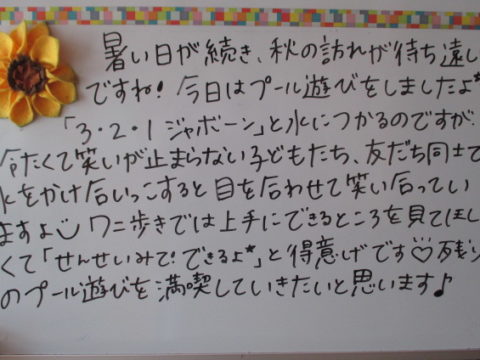 暑い日が続き、秋の訪れが待ち遠し
ですね！今日はプール遊びをしましたよ*
「3・2・1ジャボーン」と水につかるのですが、
冷たくて笑いが止まらない子どもたち、友だち同士で
水をかけ合いっこすると目を合わせて笑い合ってい
ますよ ワニ歩きでは上手にできるところを見てほし
くて「せんせいみて！できるよ*」と得意げです♡残り
のプール遊びを満喫していきたいと思います♪